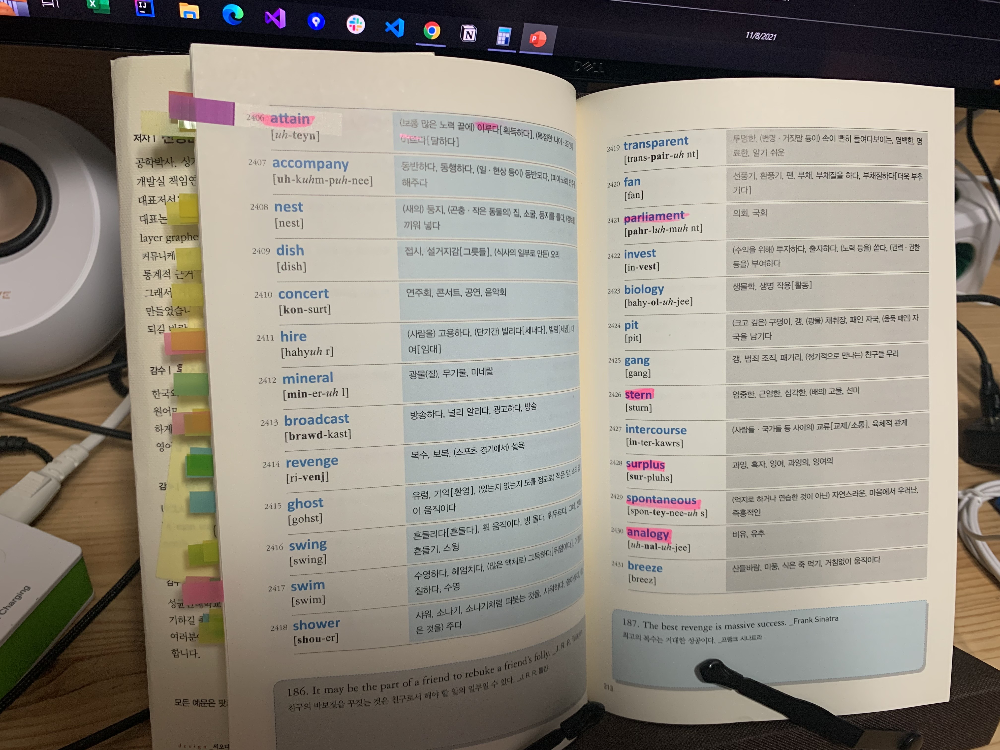 11/8/2021
DELL
2406 attain
[uh-teyn]
많은 노력 끝에) 이루다[획득하다],
이르다[달하다]
2407 accompany
[uh-kuhm-puh-nee]
동반하다, 동행하다, (일·현상 등이) 동반되다,
해주다
2408 nest
[nest]
(새의) 둥지, (곤충·작은 동물의) 집, 소굴, 둥지를 틀다,
끼워 넣다
2409 dish
[dish]
접시, 설거지감[그릇들], (식사의 일부로 만든) 요리
2410 concert
[kon-surt]
연주회, 콘서트, 공연, 음악회
2411 hire
[hahyuh r]
(사람을) 고용하다, (단기간) 빌리다[세내다],
여[임대]
2412 mineral
[min-er-uh l]
광물(질), 무기물, 미네랄
2413 broadcast
[brawd-kast]
방송하다, 널리 알리다, 광고하다, 방송
2414 revenge
[ri-venj]
복수, 보복, (스포츠 경기에서) 설욕
2415 ghost
[gohst]
유령, 기억[환영], (있는지 없는지 모를 정도로) 작은
이 움직이다
2416 swing
[swing]
흔들리다[흔들다], 휙 움직이다,
흔들기, 스윙
2417 swim
[swim]
수영하다, 헤엄치다, (많은 액체로) 그득하다
질하다, 수영
2418 shower
[shou-er]
샤워, 소나기, 소나기처럼 퍼붓는 것을, 샤워하다,
은 것을) 주다
186. It may be the part of a friend to rebuke a friend's folly. _J. R. R.
친구의 바보짓을 꾸짖는 것은 친구로서 해야 할 일의 일부일 수 있다. _J. R. R. 톨킨
2419 transparent
[trans-pair-uh nt]
투명한, (변명·거짓말 등이) 속이 뻔히 들여다보이는, 명백한, 명
료한, 알기 쉬운
2420 fan
[fan]
선풍기, 환풍기, 팬, 부채, 부채질을 하다, 부채질하다[더욱 부추
기다]
2421 parliament
[pahr-luh-muh nt]
의회, 국회
2422 invest
[in-vest]
(수익을 위해) 투자하다, 출자하다, (노력 등을) 쏟다, (권력·권한
등을) 부여하다
2423 biology
[bahy-ol-uh-jee]
생물학, 생명 작용[활동]
2424 pit
[pit]
(크고 깊은) 구덩이, 갱, (광물) 채취장, 패인 자국, (움푹 패인) 자
국을 남기다
2425 gang
[gang]
갱, 범죄 조직, 패거리, (정기적으로 만나는) 친구들 무리
2426 stern
[sturn]
엄중한, 근엄한, 심각한, (배의) 고물, 선미
2427 intercourse
[in-ter-kawrs]
(사람들·국가들 등 사이의) 교류[교제/소통], 육체적 관계
2428 surplus
[sur-pluhs]
과잉, 흑자, 잉여, 과잉의, 잉여의
2429 spontaneous
[spon-tey-nee-uh s]
(억지로 하거나 연습한 것이 아닌) 자연스러운, 마음에서 우러난,
즉흥적인
2430 analogy
[uh-nal-uh-jee]
비유, 유추
2431 breeze
[breez]
산들바람, 미풍, 식은 죽 먹기, 거침없이 움직이다
187. The best revenge is massive success. _Frank Sinatra
최고의 복수는 거대한 성공이다. _프랭크 시나트라
213
저자 |
공학박사,
개발실 책임연
대표저서
대표는
layer graphe
커뮤니케
통계적
그래서
만들었습니
되길 바
감수 |
한국
원어
하게
영어
기하길
여러분
합니다.
모든 예문은
Charging